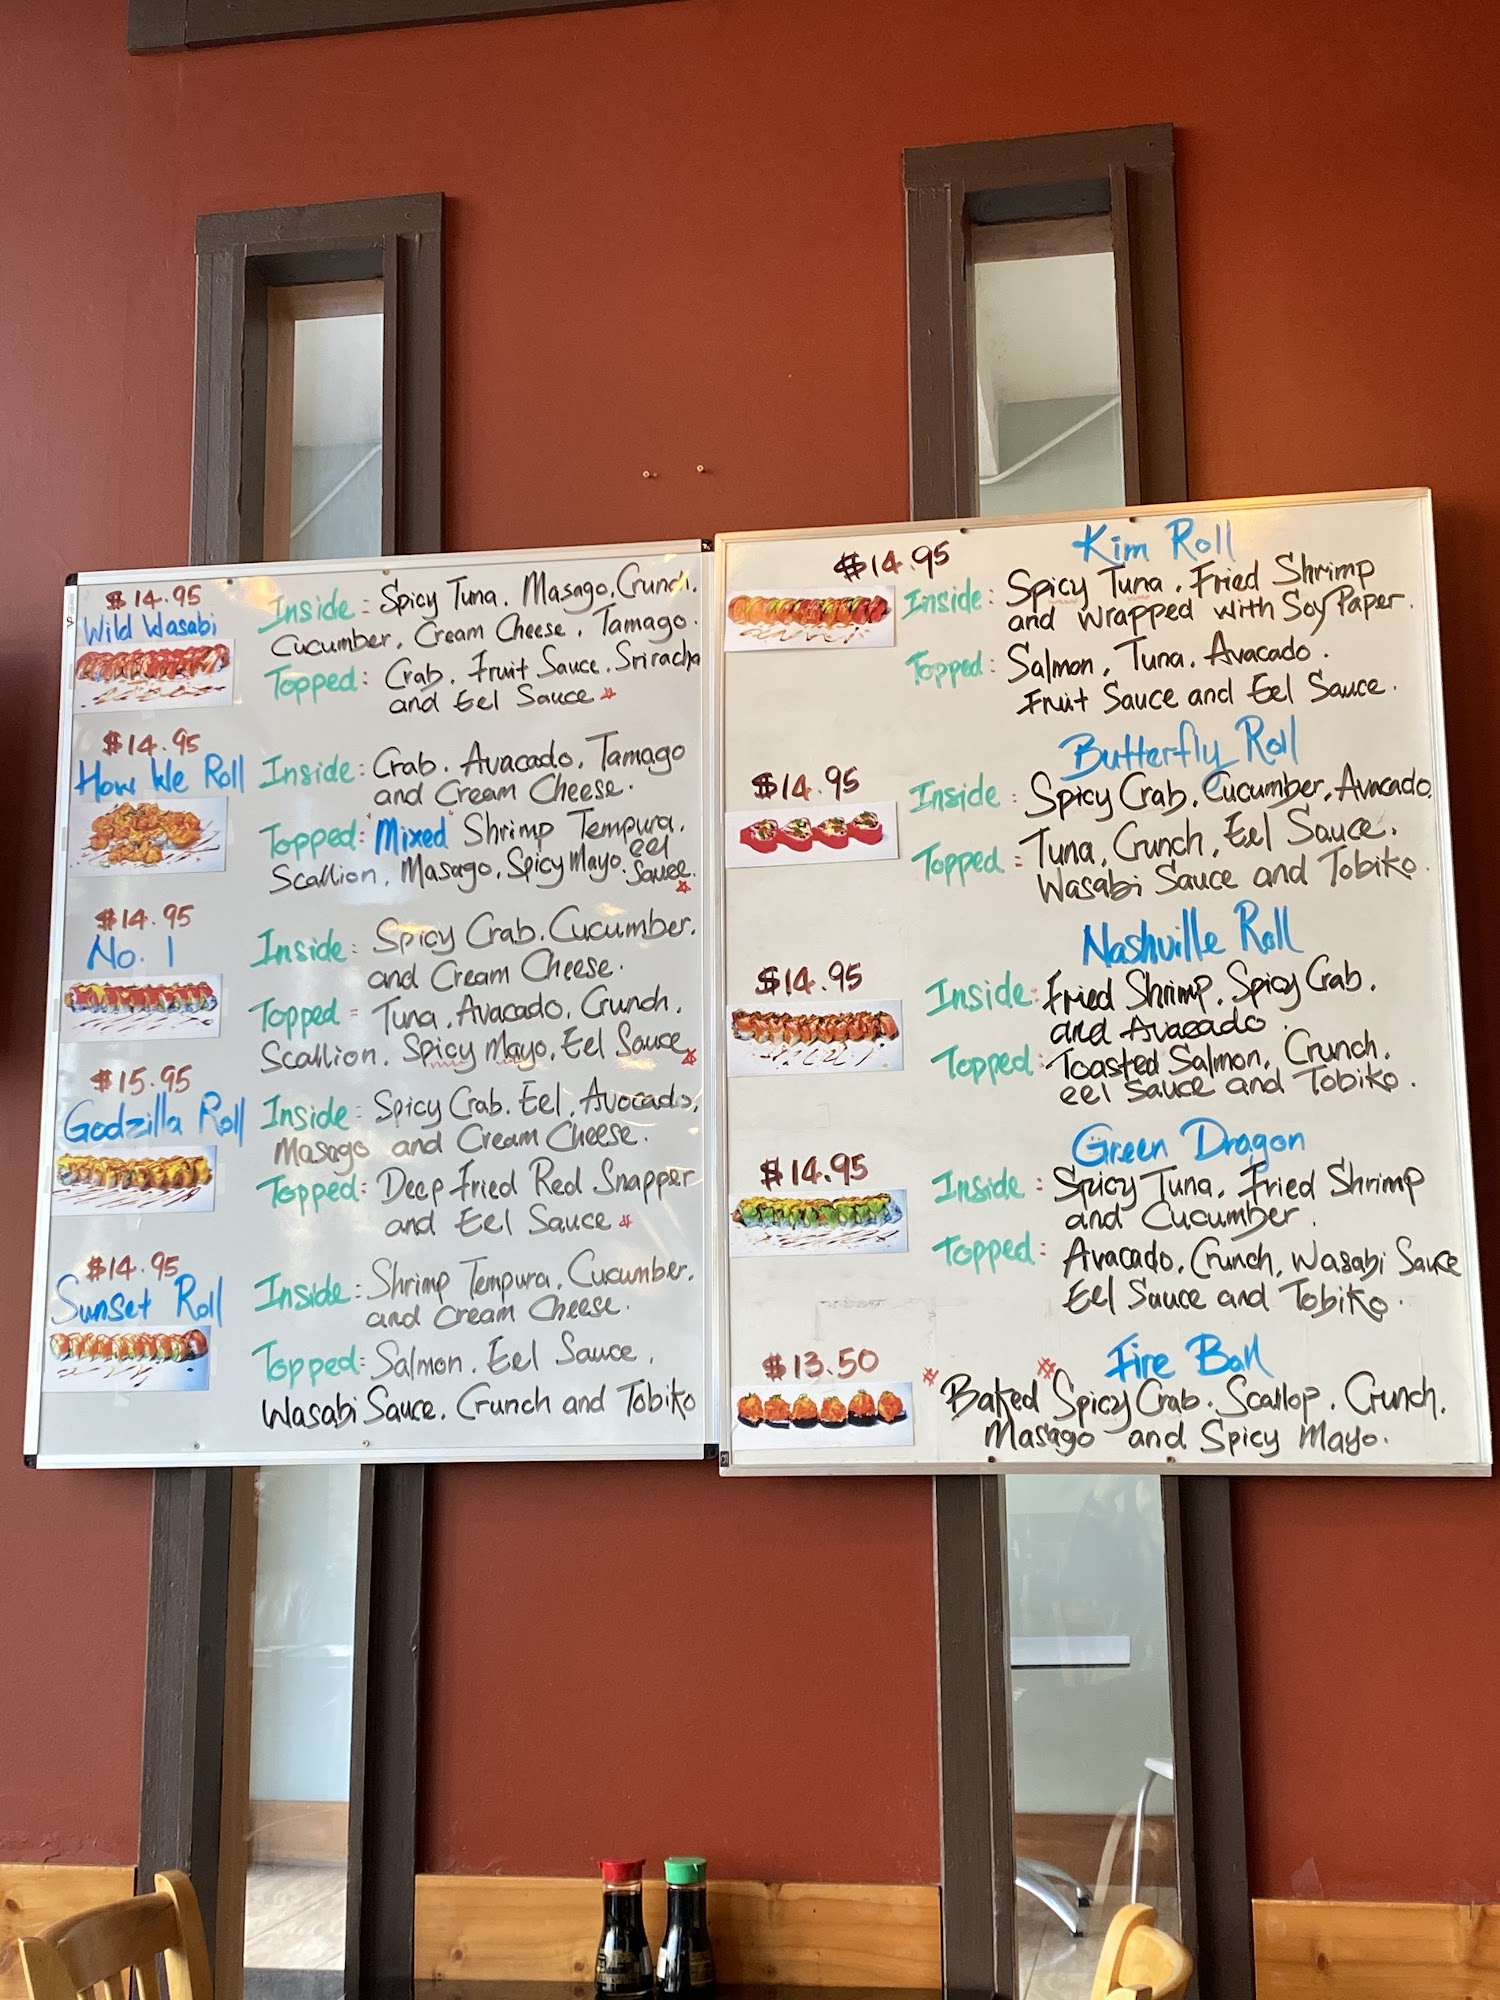 $14.95
Wild Wasabi
Inside: Spicy Tuna. Masago. Crunch.
Cucumber. Cream Cheese. Tamago.
Topped: Crab. Fruit Sauce. Sriracha
and Eel Sauce
$14.95
How We Roll
Inside: Crab. Avacado, Tamago
and Cream Cheese.
Topped: "Mixed" Shrimp Tempura.
Scallion, Masago, Spicy Mayo. eel
Sauce.
$14.95
No. 1
Inside: Spicy Crab. Cucumber.
and Cream Cheese.
Topped: Tuna. Avacado, Crunch.
Scallion. Spicy Mayo, Eel Sauce
$15.95
Godzilla Roll
Inside: Spicy Crab. Eel, Avocado,
Masago and Cream Cheese.
Topped: Deep Fried Red Snapper
and Eel Sauce
$14.95
Sunset Roll
Inside: Shrimp Tempura. Cucumber.
and Cream Cheese.
Topped: Salmon. Eel Sauce.
Wasabi Sauce. Crunch and Tobiko
Kim Roll
$14.95
Inside: Spicy Tuna. Fried Shrimp
and wrapped with Soy Paper.
Topped: Salmon, Tuna. Avacado.
Fruit Sauce and Eel Sauce.
Butterfly Roll
$14.95
Inside: Spicy Crab. Cucumber, Avacado.
Topped: Tuna, Crunch, Eel Sauce.
Wasabi Sauce and Tobiko.
Nashville Roll
$14.95
Inside: Fried Shrimp. Spicy Crab.
and Avacado.
Topped: Toasted Salmon, Crunch.
eel sauce and Tobiko.
Green Dragon
$14.95
Inside: Spicy Tuna, Fried Shrimp
and Cucumber.
Topped: Avacado, Crunch, Wasabi Sauce
Eel Sauce and Tobiko.
Fire Ball
$13.50
Baked Spicy Crab. Scallop. Crunch.
Masago and Spicy Mayo.